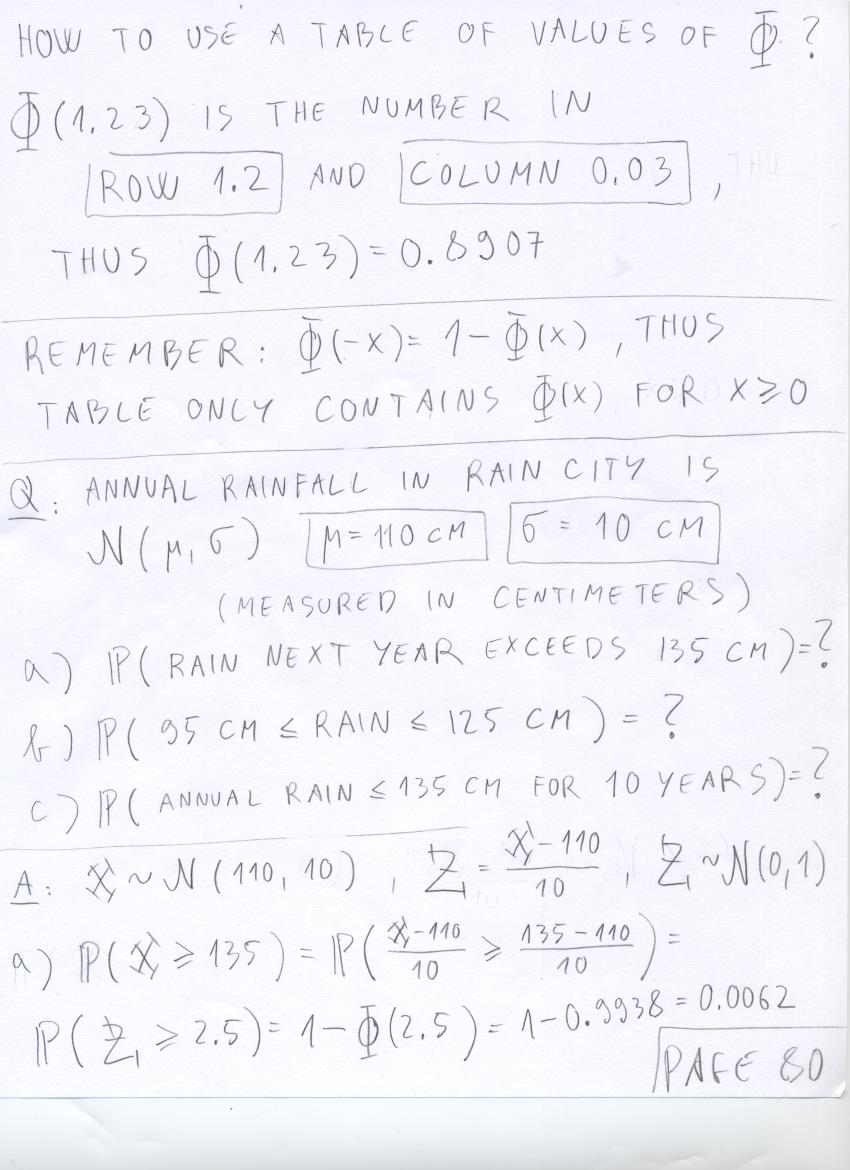 HOW TO USE A TABLE OF VALUES OF Φ ?
Φ(1.23) IS THE NUMBER IN
ROW 1.2 AND COLUMN 0.03 ,
THUS Φ(1.23) = 0.8907
REMEMBER: Φ(-X) = 1 - Φ(X) , THUS
TABLE ONLY CONTAINS Φ(X) FOR X ≥ 0
Q: ANNUAL RAINFALL IN RAIN CITY IS
N(μ, σ) μ = 110 CM σ = 10 CM
(MEASURED IN CENTIMETERS)
a) P( RAIN NEXT YEAR EXCEEDS 135 CM ) = ?
b) P( 95 CM ≤ RAIN ≤ 125 CM ) = ?
c) P( ANNUAL RAIN ≤ 135 CM FOR 10 YEARS) = ?
A: X ~ N(110, 10) , Z = (X - 110)/10 , Z ~ N(0,1)
a) P( X ≥ 135 ) = P( (X - 110)/10 ≥ (135 - 110)/10 ) =
P( Z ≥ 2.5 ) = 1 - Φ(2.5) = 1 - 0.9938 = 0.0062
PAGE 80